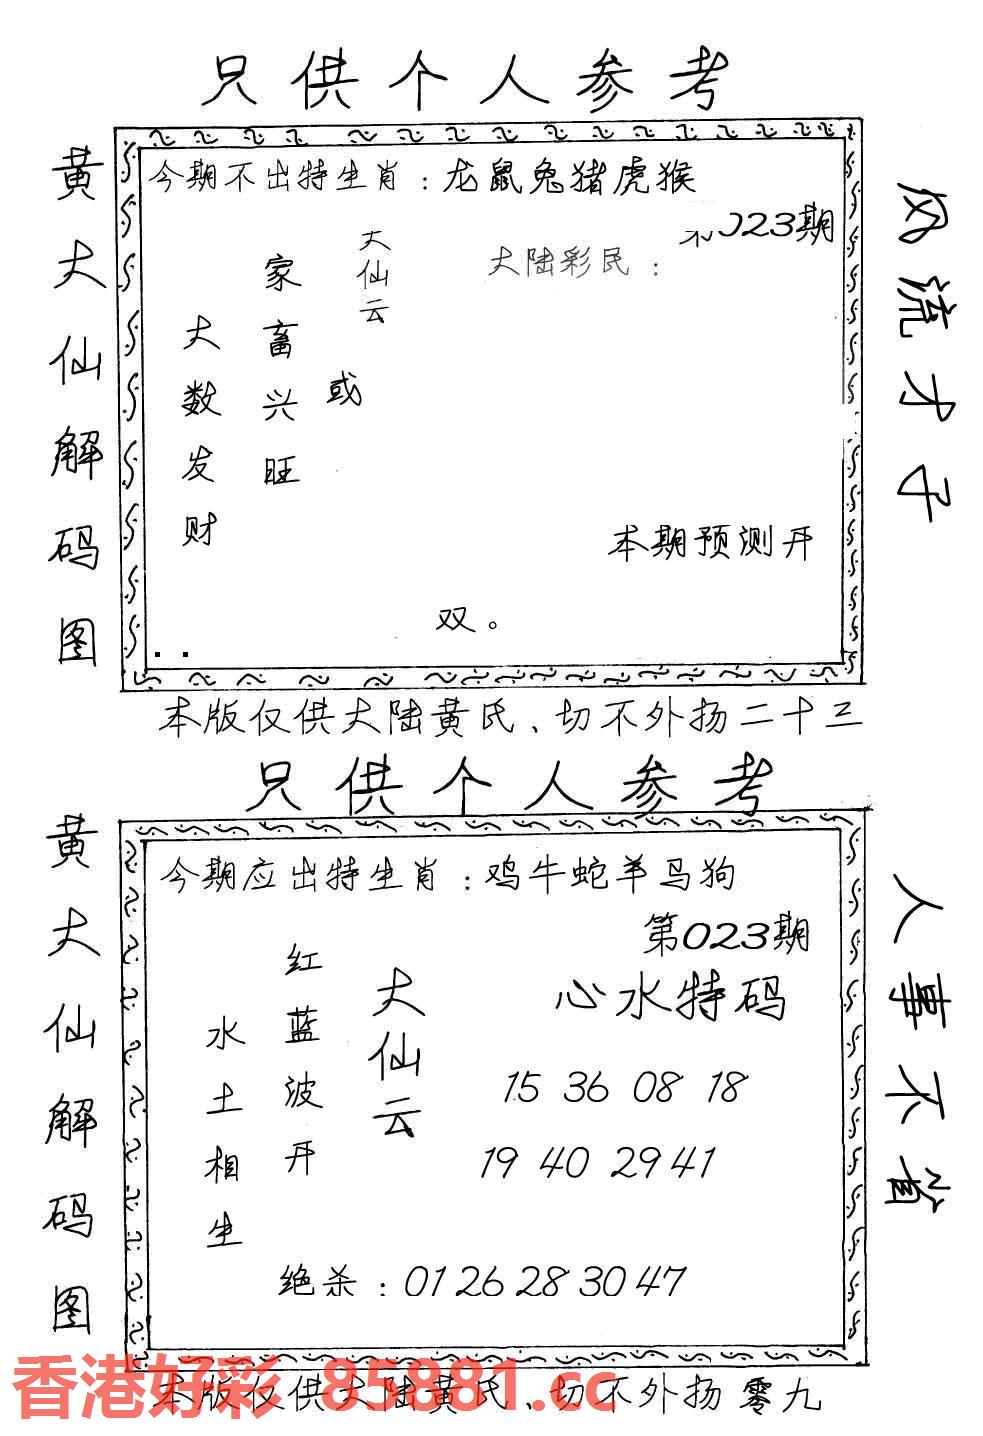 只供个人参考
黄大仙解码图
今期不出特生肖：龙鼠兔猪虎猴
023期
大陆彩民：
大仙云
家畜兴旺
或
大数发财
本期预测开
双。
风流才子
本版仅供大陆黄氏、切不外扬二十三
只供个人参考
黄大仙解码图
今期应出特生肖：鸡牛蛇羊马狗
第023期
心水特码
大仙云
红蓝波开
水土相生
15 36 08 18
19 40 29 41
绝杀：01 26 28 30 47
人事不省
香港好彩 85881.cc
本版仅供大陆黄氏、切不外扬零九